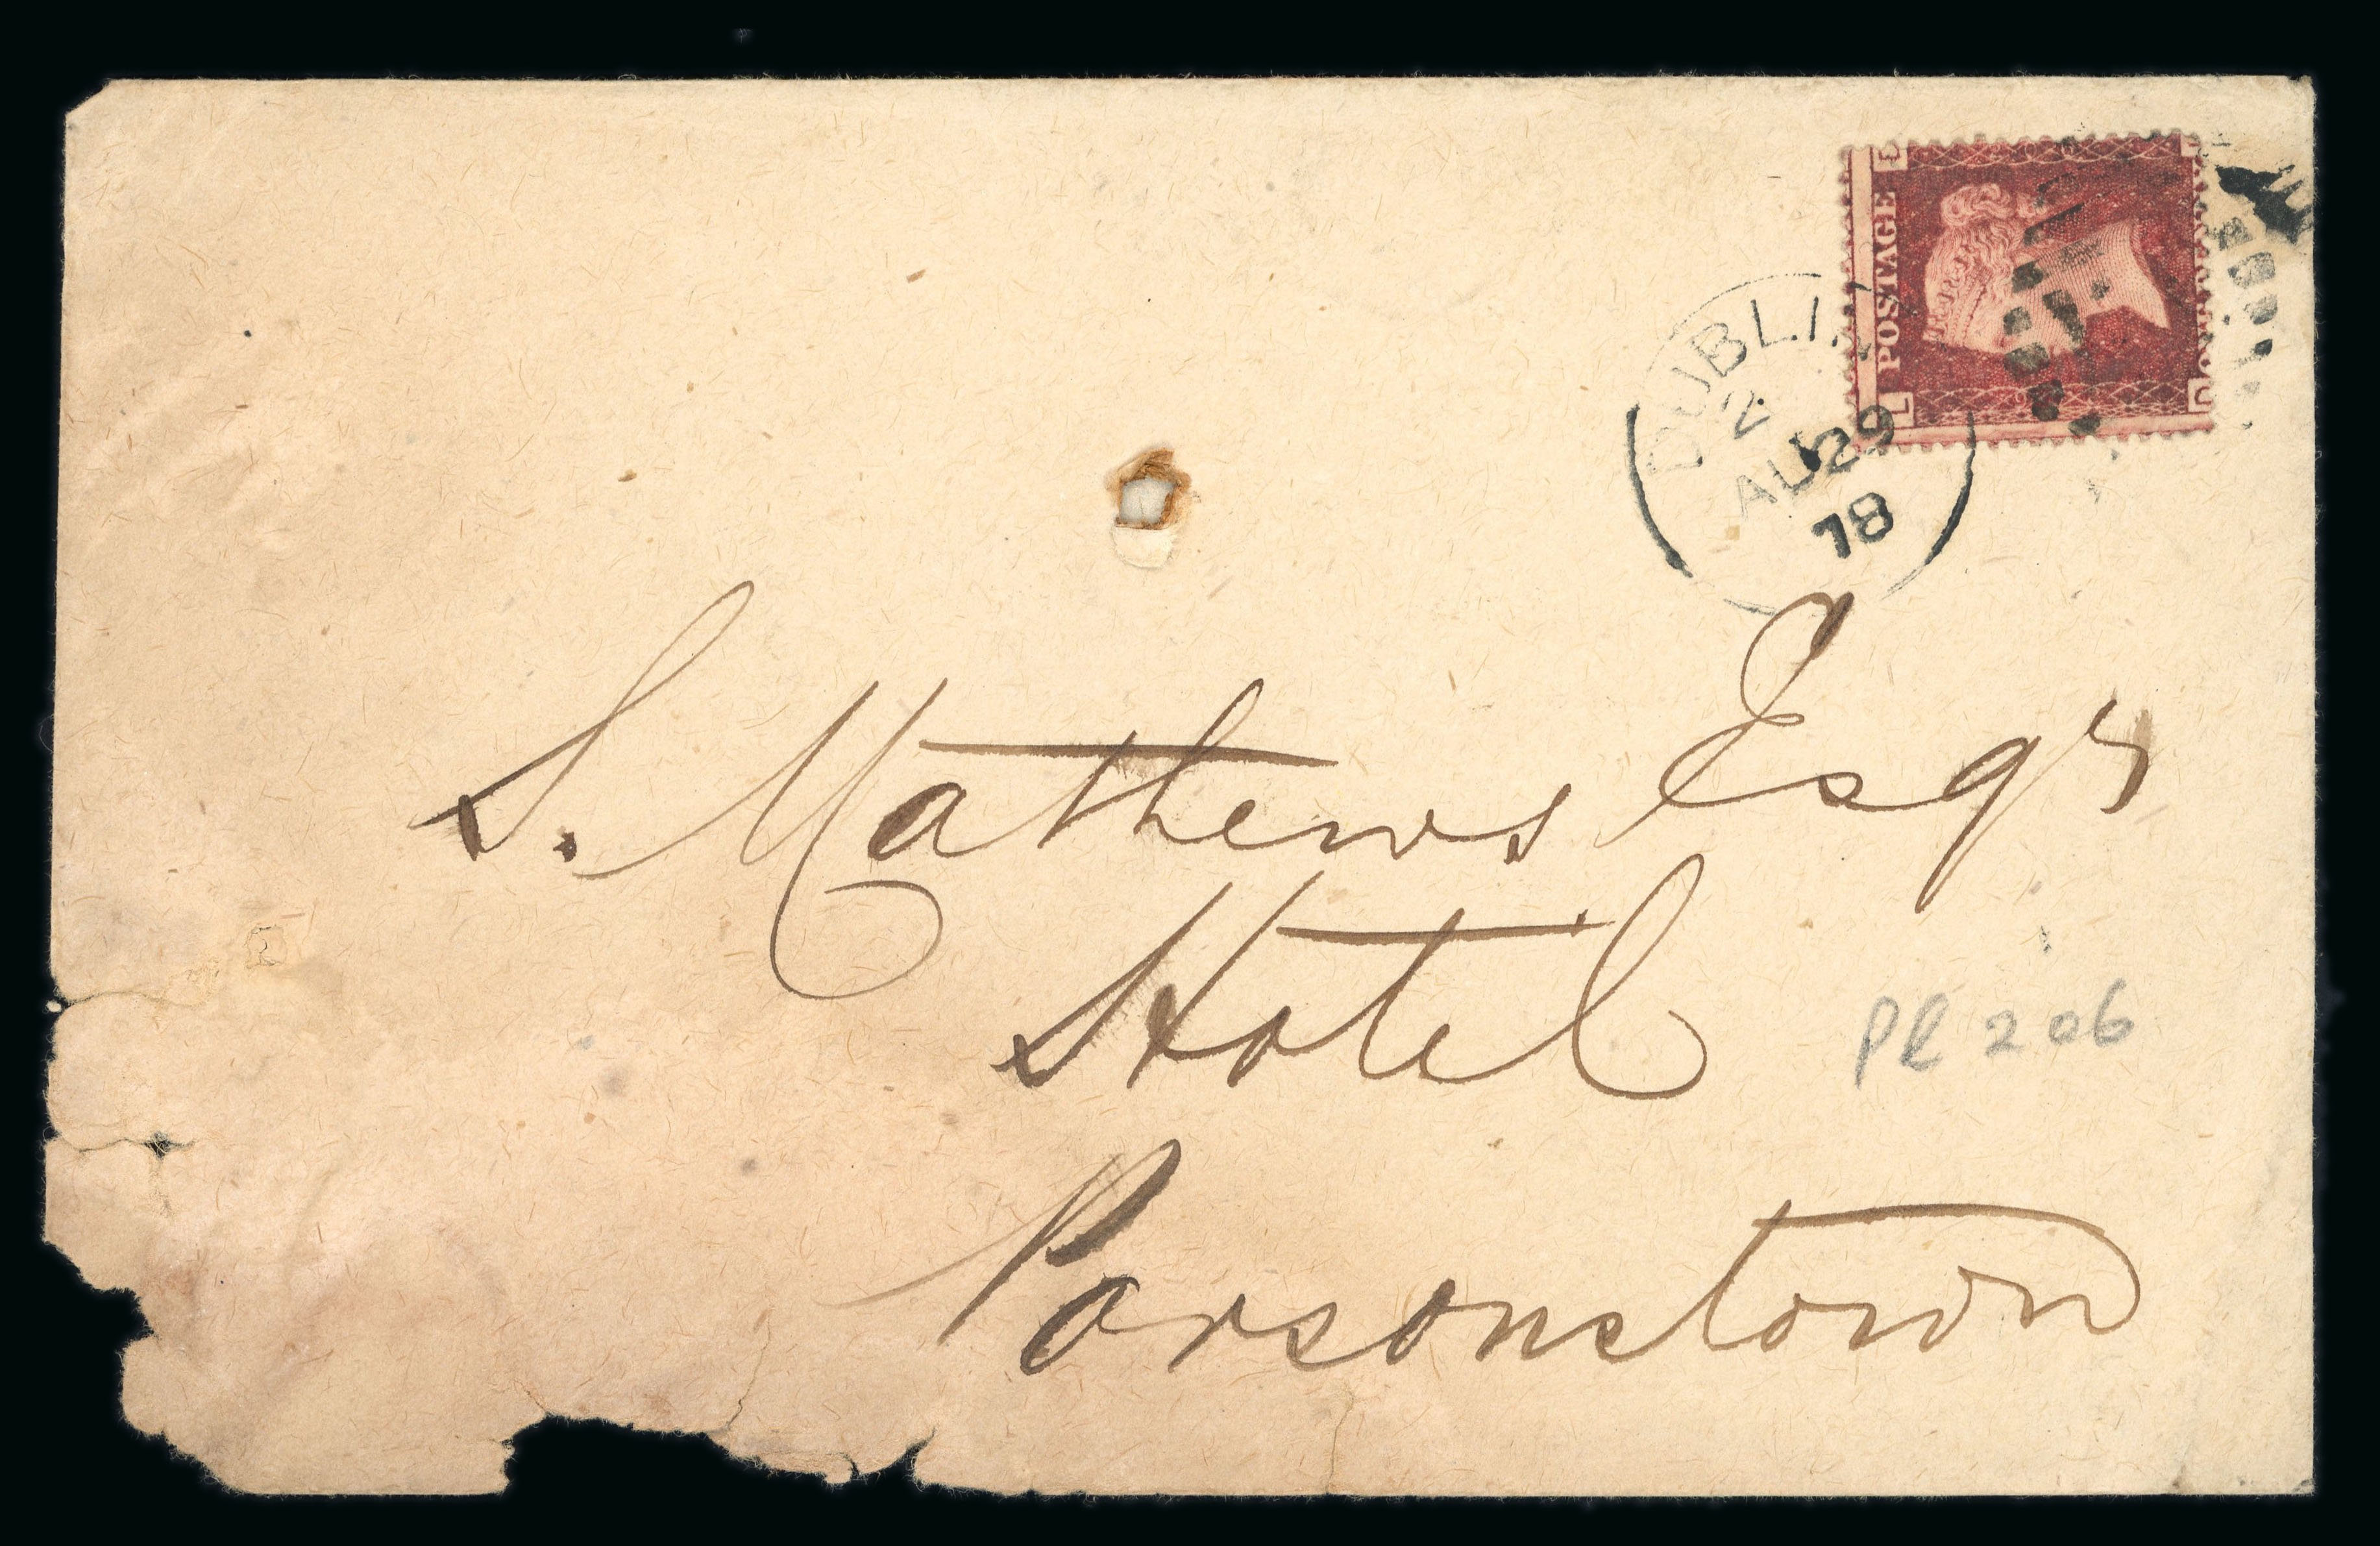 POSTAGE
L
D
DUBLI
2
AU 29
78
S. Mathews Esqr
Hotel
Parsonstown
Pl 206